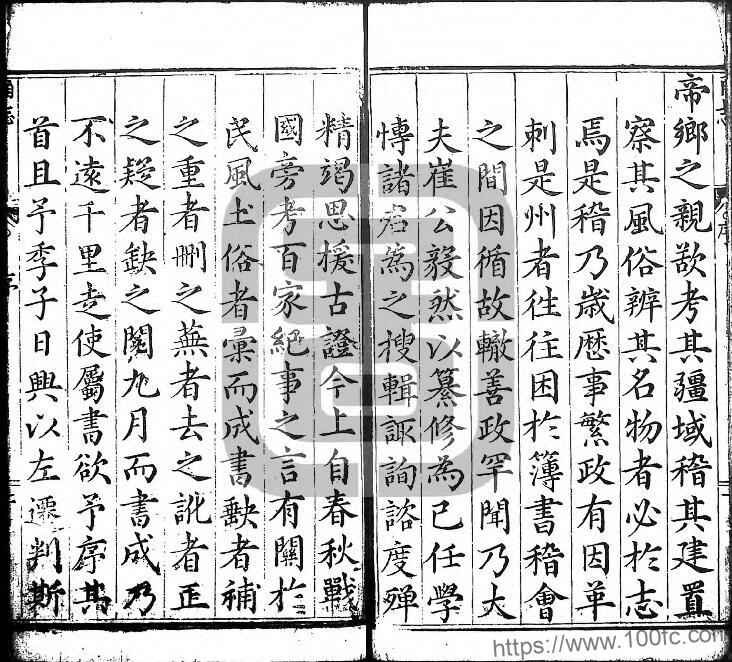 帝鄉之親欲考其疆域稽其建置
察其風俗辨其名物者必於志
焉是稽乃歲歷事繁政有因革
刺是州者徃往困於簿書稽會
之間因循故轍善政罕聞乃大
夫崔公毅然以纂修為己任學
博諸君為之搜輯諏詢諮度殫
精竭思援古證今上自春秋戰
國旁考百家紀事之言有關於
民風土俗者彙而成書缺者補
之重者刪之蕪者去之訛者正
之疑者缺之閱九月而書成乃
不遠千里走使屬書欲予序其
首且予季子日興以左遷判斯
序
https://www.100fc.com